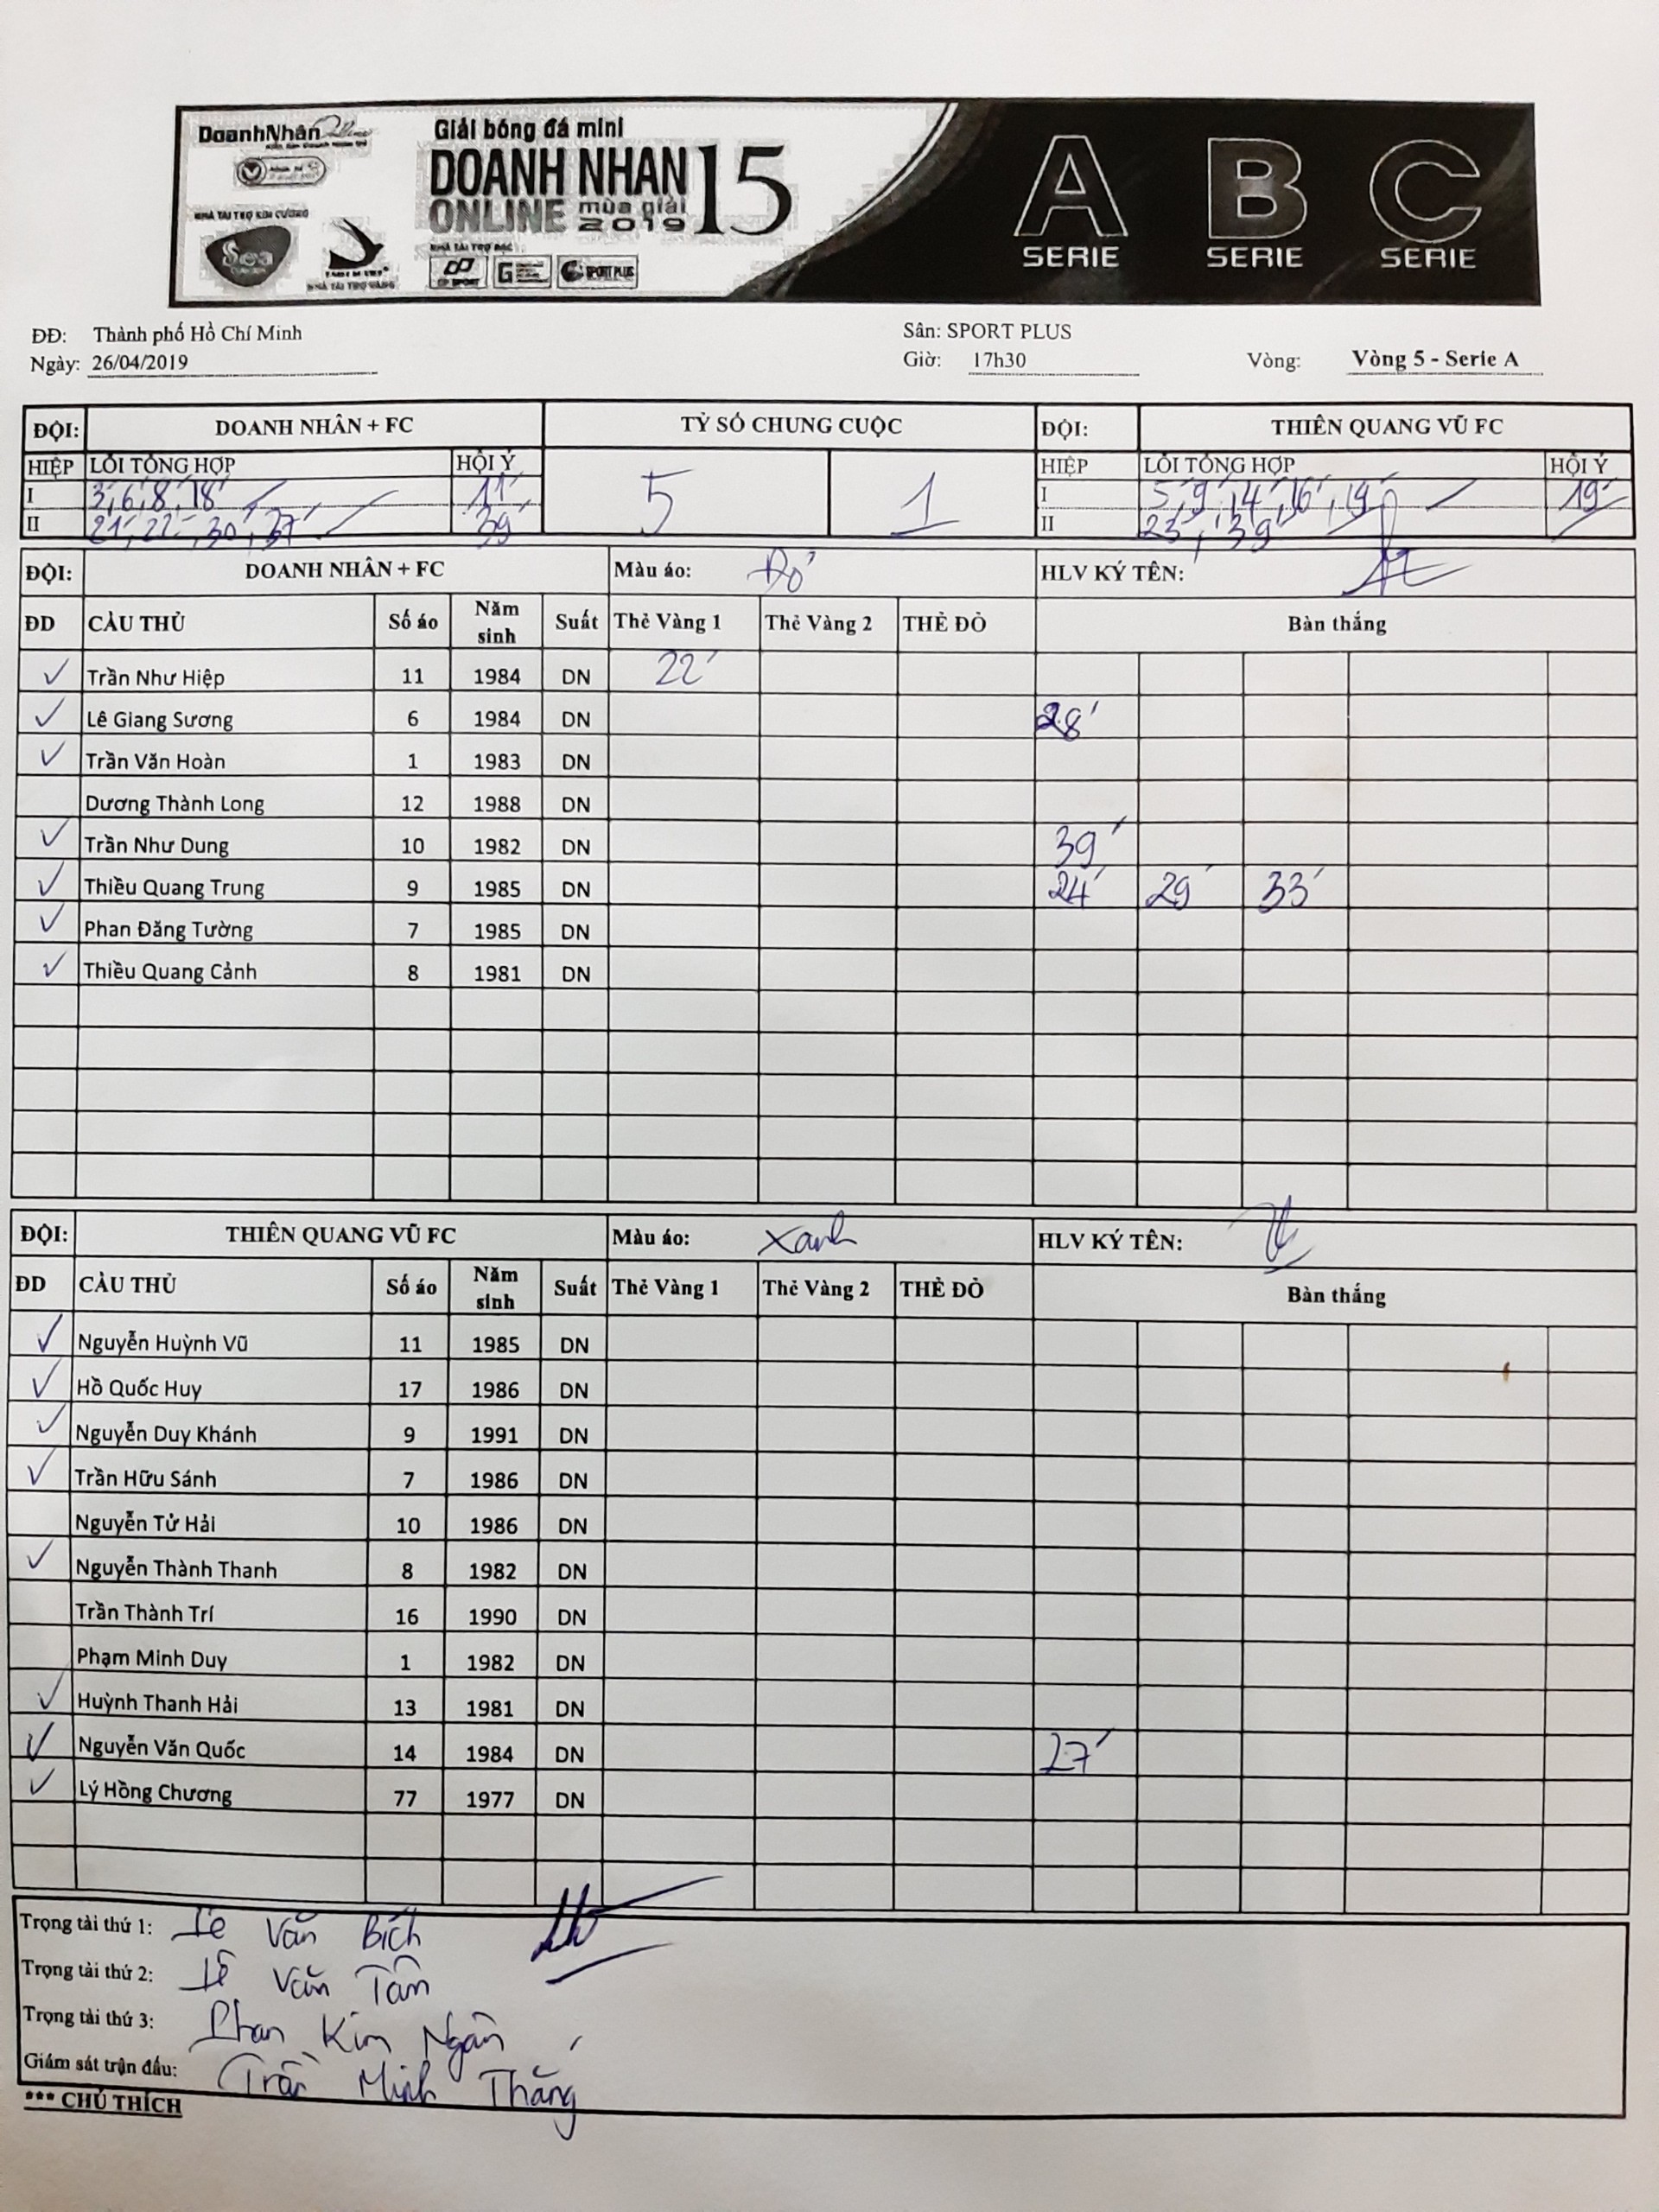 DoanhNhân Online
Giải bóng đá mini
DOANH NHAN 15
ONLINE mùa giải 2019
NHÀ TÀI TRỢ KIM CƯƠNG
Sea
NHÀ TÀI TRỢ VÀNG
NHÀ TÀI TRỢ BẠC
SPORT PLUS
A SERIE B SERIE C SERIE
ĐĐ: Thành phố Hồ Chí Minh Sân: SPORT PLUS
Ngày: 26/04/2019 Giờ: 17h30 Vòng: Vòng 5 - Serie A
ĐỘI: DOANH NHÂN + FC TỶ SỐ CHUNG CUỘC ĐỘI: THIÊN QUANG VŨ FC
HIỆP LỖI TỔNG HỢP HỘI Ý 5 1 HIỆP LỖI TỔNG HỢP HỘI Ý
I 3', 6', 8', 18' 11' I 5', 9', 14', 16', 19' 19'
II 21', 22', 30', 37' 39' II 23', 39'
ĐỘI: DOANH NHÂN + FC Màu áo: Đỏ HLV KÝ TÊN:
ĐD CẦU THỦ Số áo Năm sinh Suất Thẻ Vàng 1 Thẻ Vàng 2 THẺ ĐỎ Bàn thắng
✓ Trần Như Hiệp 11 1984 DN 22'
✓ Lê Giang Sương 6 1984 DN 28'
✓ Trần Văn Hoàn 1 1983 DN
Dương Thành Long 12 1988 DN
✓ Trần Như Dung 10 1982 DN 39'
✓ Thiều Quang Trung 9 1985 DN 24' 29' 33'
✓ Phan Đăng Tường 7 1985 DN
✓ Thiều Quang Cảnh 8 1981 DN
ĐỘI: THIÊN QUANG VŨ FC Màu áo: Xanh HLV KÝ TÊN:
ĐD CẦU THỦ Số áo Năm sinh Suất Thẻ Vàng 1 Thẻ Vàng 2 THẺ ĐỎ Bàn thắng
✓ Nguyễn Huỳnh Vũ 11 1985 DN
✓ Hồ Quốc Huy 17 1986 DN
✓ Nguyễn Duy Khánh 9 1991 DN
✓ Trần Hữu Sánh 7 1986 DN
Nguyễn Tử Hải 10 1986 DN
✓ Nguyễn Thành Thanh 8 1982 DN
Trần Thành Trí 16 1990 DN
Phạm Minh Duy 1 1982 DN
✓ Huỳnh Thanh Hải 13 1981 DN
✓ Nguyễn Văn Quốc 14 1984 DN 27'
✓ Lý Hồng Chương 77 1977 DN
Trọng tài thứ 1: Lê Văn Bích
Trọng tài thứ 2: Lê Văn Tân
Trọng tài thứ 3: Phan Kim Ngân
Giám sát trận đấu: Trần Minh Thắng
*** CHÚ THÍCH